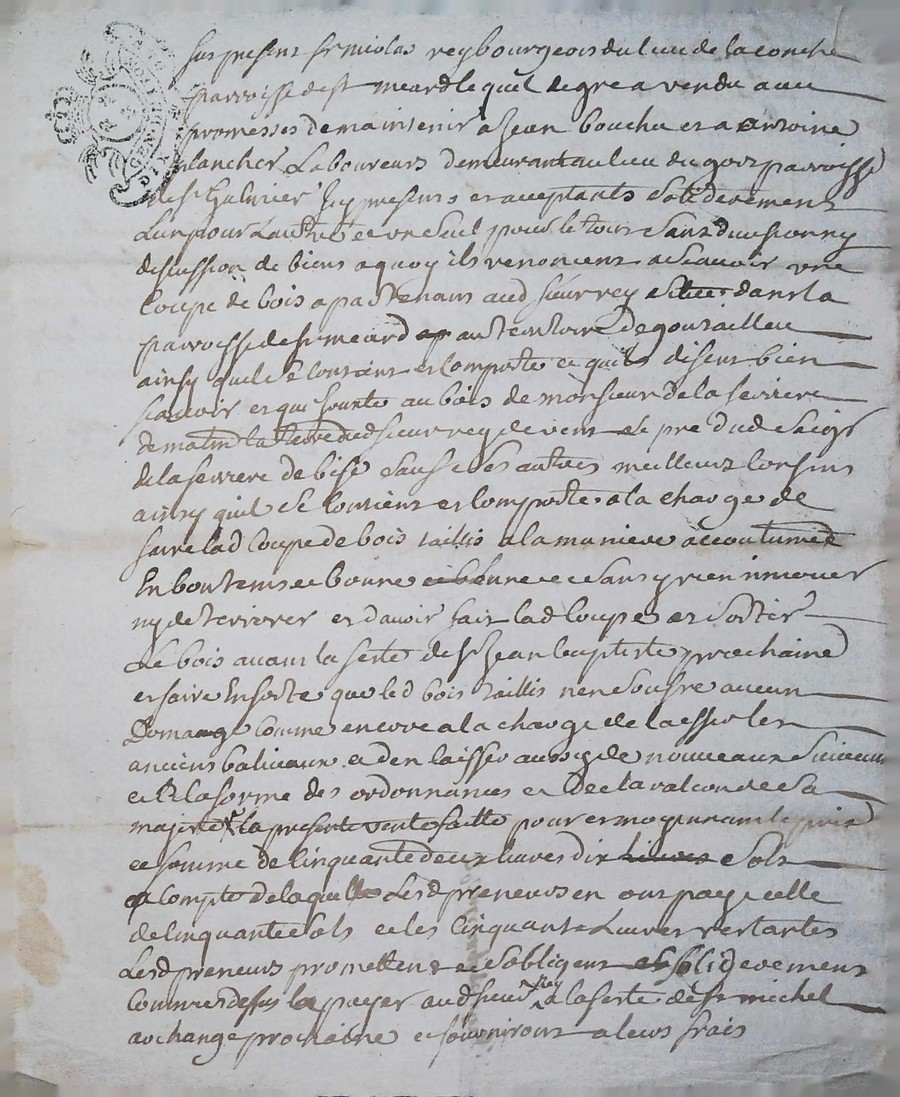 fut present sr nicolas rey bourgeois du lieu de la conche
parroisse de st meard lequel de gre a vendu avec
promesses de maintenir a Jean bouchu et a antoine
plancher laboureurs demeurant au lieu du parroisse
de st Galmier Icy presents et acceptants solidairement
l'un pour lautre et un seul pour le tout sans division ny
discussion de biens a quoy ils renoncent a scavoir une
Coupe de bois apartenant aud sieur rey située dans la
parroisse de st meard au territoire de
ainsy quelle se contient et comporte ce quils disent bien
scavoir et que jouxte au bois de monsieur de la
de matin la terre dud sieur rey de vent le pre dud
de la de bise sauf ses autres meilleurs confins
ainsy quil se contient et comporte a la charge de
faire lad Coupe de bois taillis a la maniere accoutumée
En bon tems et bonne et sans y rien innover
ny deteriorer et davoir fait lad coupe et sortir
le bois avant la feste de st Jean baptiste prochaine
et faire Ensorte que led bois taillis nen soufre aucun
Domage Comme encore a la charge de laisser les
anciens baliveaux et den laisser aussy de nouveaux suivant
et a la forme des ordonnances et declaration de sa
majesté la presente vente faitte pour et moyenant le prix
et somme de Cinquante deux livres dix sols
a Compte de laquelle lesd preneurs en ont paye celle
de Cinquante sols et les Cinquante Livres restantes
Lesd preneurs promettent et sobligent solidairement
Comme dessus la payer aud sieur rey a la feste de st michel
archange prochaine et fourniront a leurs frais